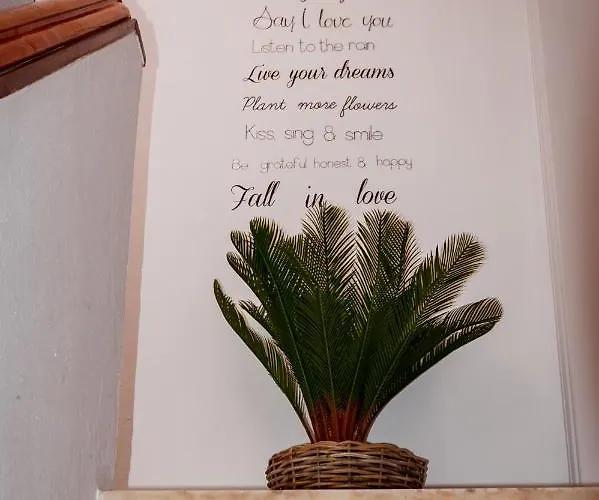 Say I love you
Listen to the rain
Live your dreams
Plant more flowers
Kiss, sing & smile
Be grateful honest & happy
Fall in love